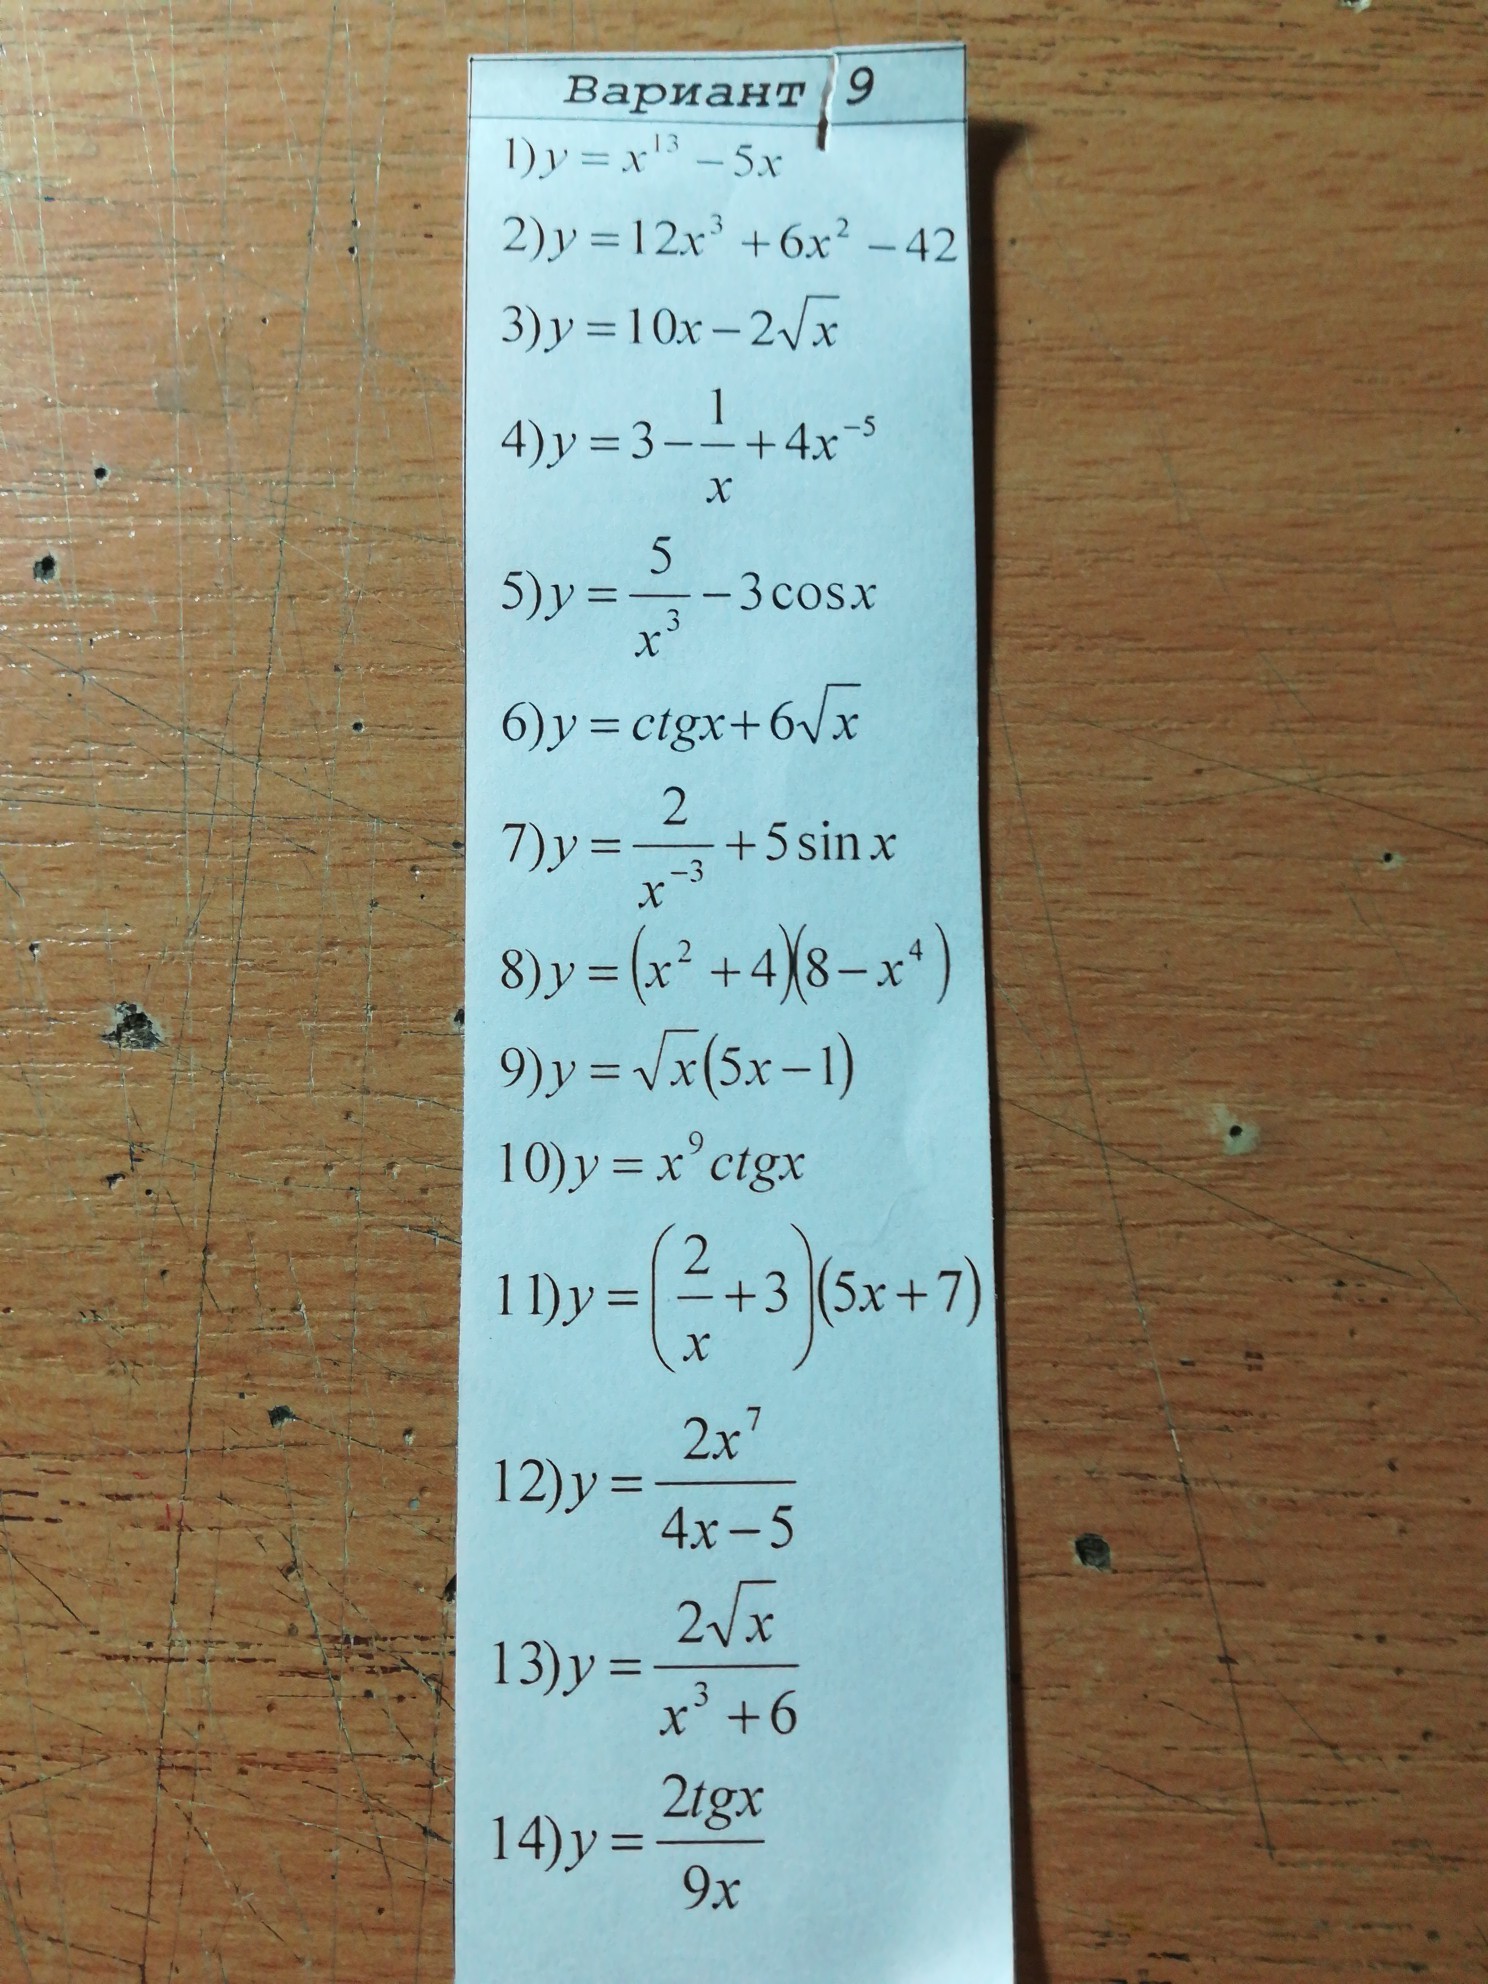 Вариант 9
1) y = x¹³ – 5x
2) y = 12x³ + 6x² – 42
3) y = 10x – 2√x
4) y = 3 – 1/x + 4x⁻⁵
5) y = 5/x³ – 3cosx
6) y = ctgx + 6√x
7) y = 2/x⁻³ + 5sinx
8) y = (x² + 4)(8 – x⁴)
9) y = √x(5x – 1)
10) y = x⁹ctgx
11) y = (2/x + 3)(5x + 7)
12) y = 2x⁷/(4x – 5)
13) y = 2√x/(x³ + 6)
14) y = 2tgx/9x